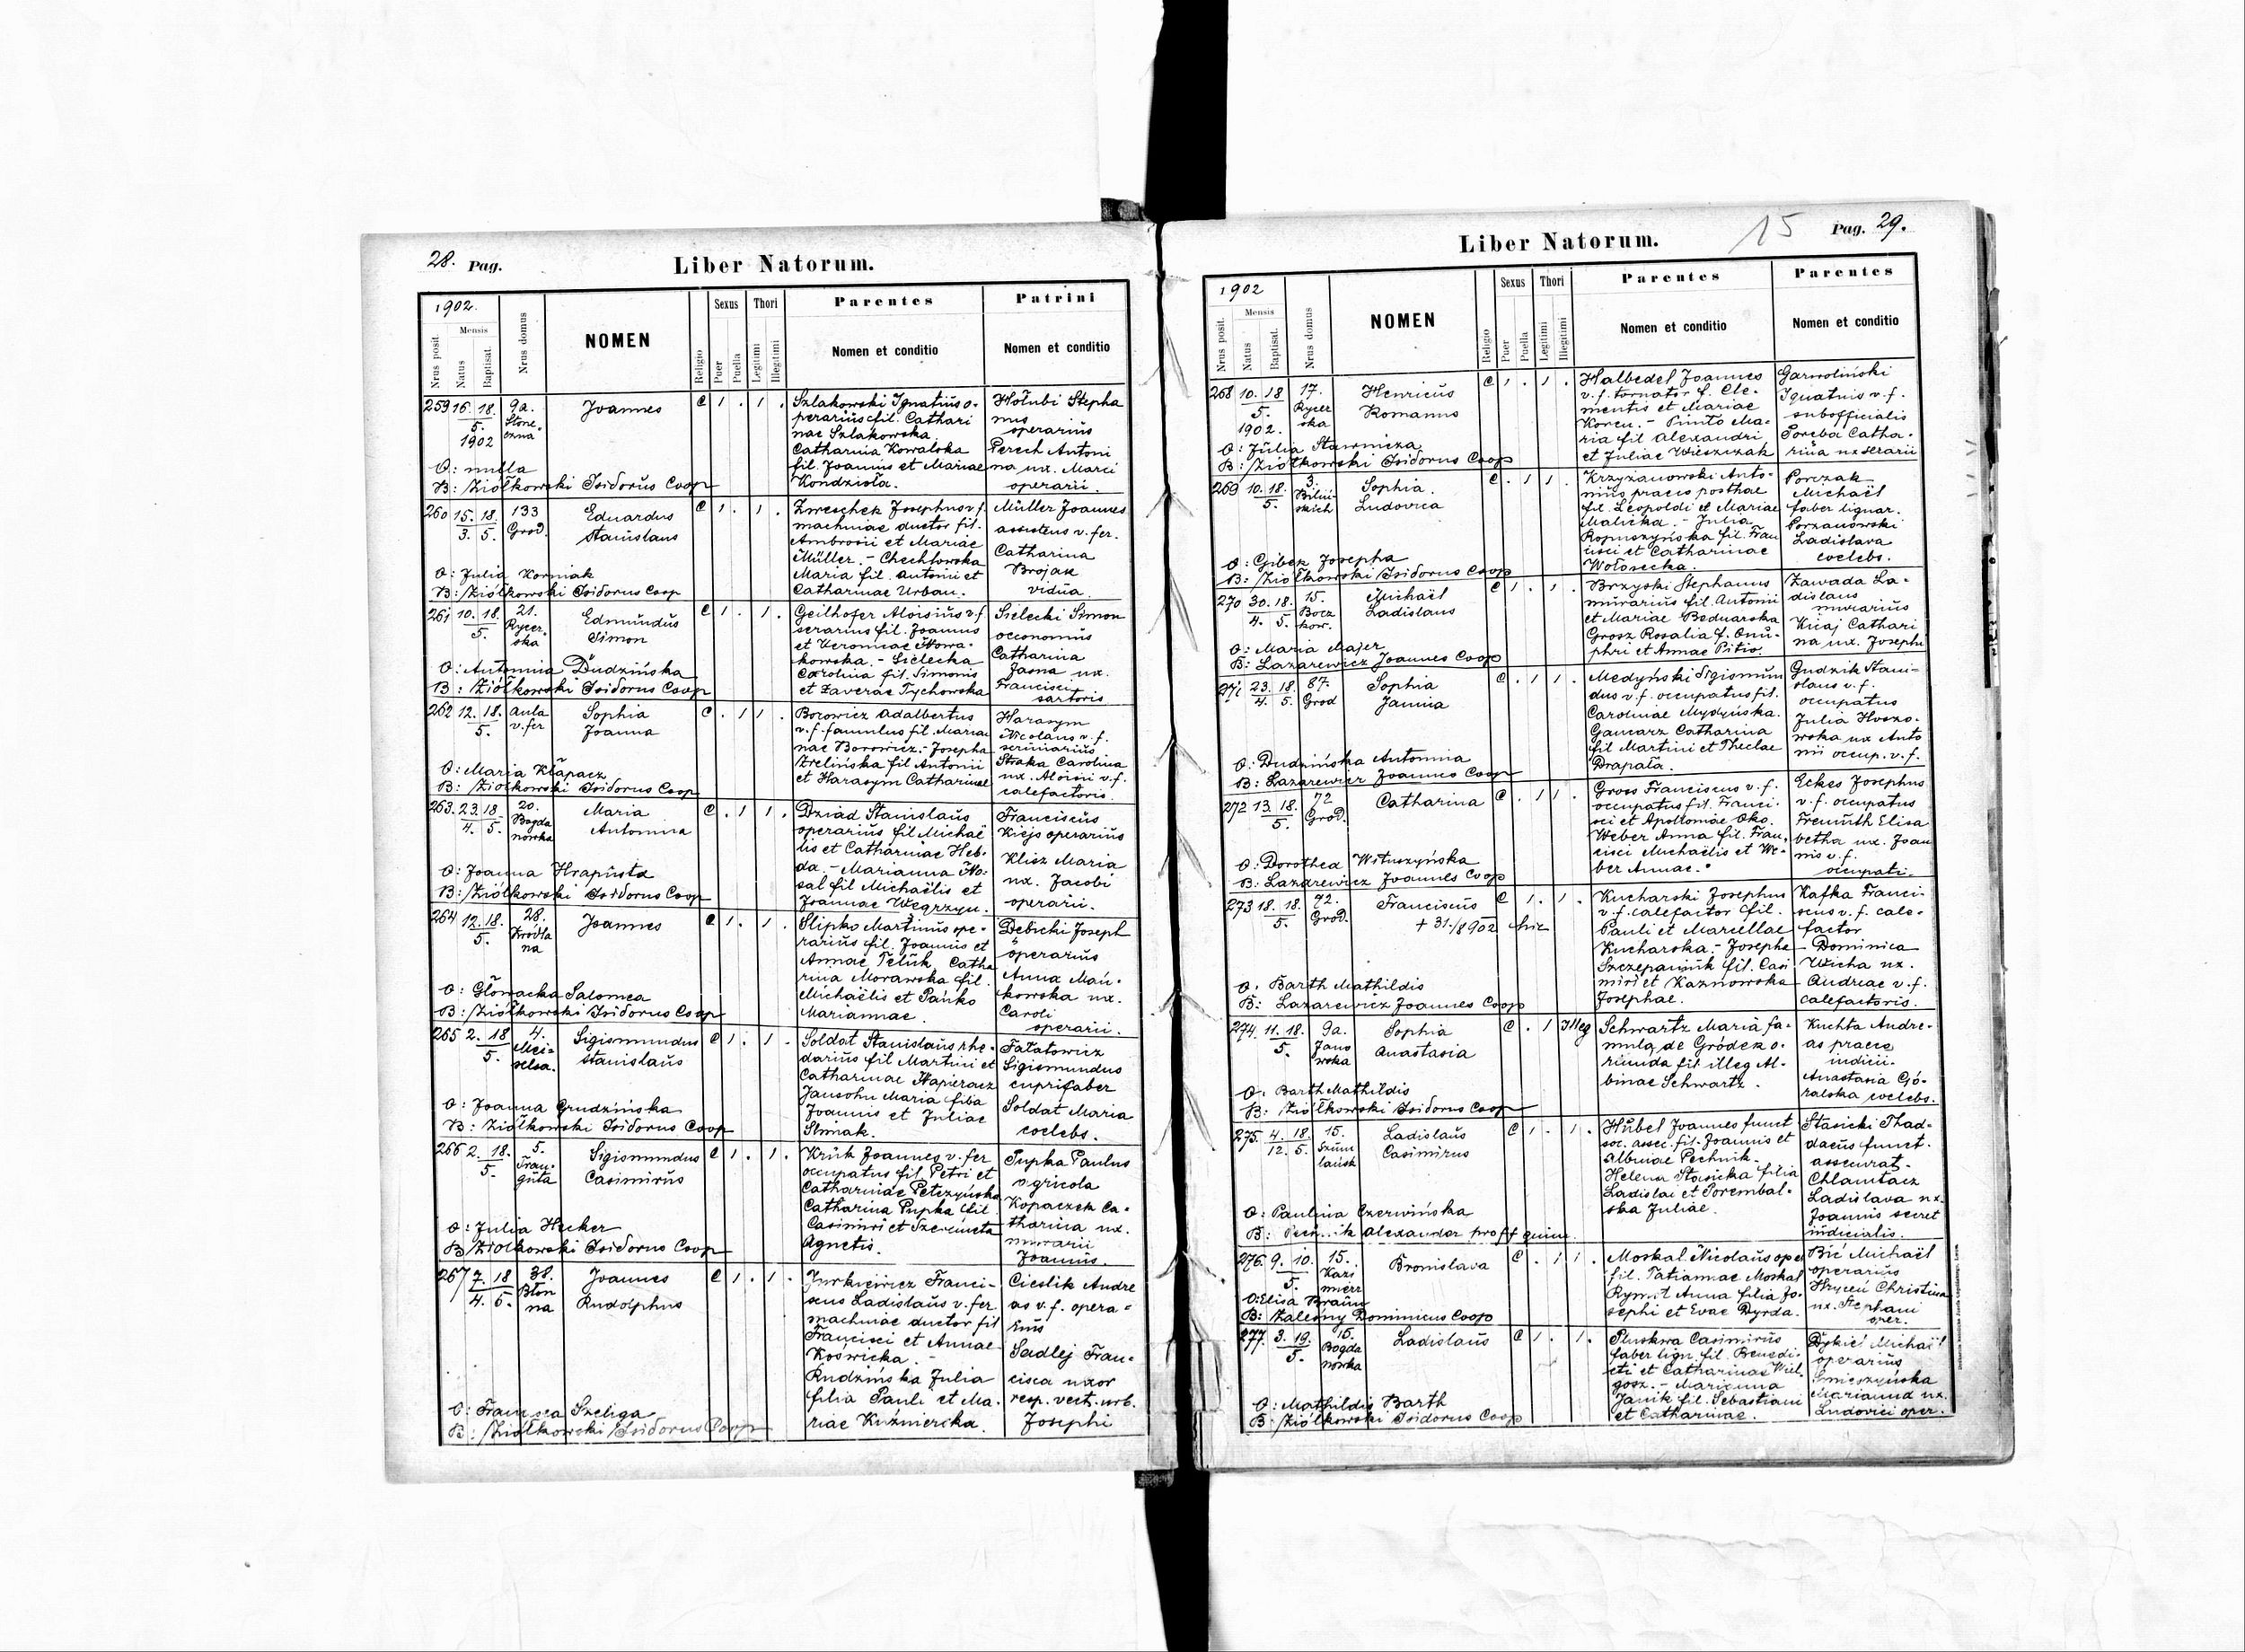 28. Pag.
Liber Natorum.
1902.
Nrus posit.
Mensis
Natus
Baptisat.
Nrus domus
NOMEN
Religio
Sexus
Puer
Puella
Thori
Legitimi
Illegitimi
Parentes
Nomen et conditio
Patrini
Nomen et conditio
259 16. 18. 9a. Joannes C 1 . 1 .
5. Słone
1902 czna
O: nulla
B: Ziółkowski Isidorus Coop
Szlakowski Ignatius o-
perarius fil. Cathari
nae Szlakowska.
Catharina Kowalska
fil. Joannis et Mariae
Kondzioła.
Hołubi Stepha
nus
operarius
Perech Antoni
na ux. Marci
operarii.
260 15. 18. 133 Eduardus C 1 . 1 .
3. 5. Grod. Stanislaus
O: Julia Korniak
B: Ziółkowski Isidorus Coop
Zweschek Josephus v. f.
machinae ductor fil.
Ambrosii et Mariae
Müller. - Chechłowska
Maria fil. Antonii et
Catharinae Urban.
Müller Joannes
assistens v. fer.
Catharina
Brojak
vidua.
261 10. 18. 21. Edmundus C 1 . 1 .
5. Rycer- Simon
ska
O: Antonina Dudzińska
B: Ziółkowski Isidorus Coop
Geilhofer Aloisius v. f.
serarius fil. Joannis
et Veronicae Nowa-
kowska. - Sielecka
Carolina fil. Simonis
et Xaverae Tychowska
Sielecki Simon
oeconomus
Catharina
Jasna ux.
Francisci
sartoris
262 12. 18. Aula Sophia C . 1 1 .
5. v. fer Joanna
O: Maria Kłapacz
B: Ziółkowski Isidorus Coop
Borowicz Adalbertus
v. f. famulus fil. Marian
nae Borowicz. - Josepha
Zrelińska fil Antonii
et Harasym Catharinae
Harasym
Nicolaus v. f.
scriniarius
Straka Carolina
ux. Aloisii v. f.
calefactoris.
263. 23. 18. 20. Maria C . 1 1 .
4. 5. Bogda Antonina
nówka
O: Joanna Hrapusta
B: Ziółkowski Isidorus Coop
Dziad Stanislaus
operarius fil Michaë
lis et Catharinae Heb-
da. - Marianna No-
sal fil Michaëlis et
Joannae Węgrzyn.
Franciscus
Kiejs operarius
Klisz Maria
ux. Jacobi
operarii.
264 12. 18. 28. Joannes C 1 . 1 .
5. Kródla
na
O: Głowacka Salomea
B: Ziółkowski Isidorus Coop
Slipko Martinus ope-
rarius fil. Joannis et
Annae Teluk Catha
rina Morawska fil.
Michaëlis et Pańko
Mariannae.
Debicki Joseph
operarius
Anna Mań-
kowska ux.
Caroli
operarii.
265 2. 18 4. Sigismundus C 1 . 1 .
5. Mei- Stanislaus
selsa.
O: Joanna Grudzińska
B: Ziółkowski Isidorus Coop
Soldat Stanislaus rhe-
darius fil Martini et
Catharinae Napieracz
Jansohn Maria filia
Joannis et Juliae
Slimak.
Fałatowicz
Sigismundus
cuprifaber
Soldat Maria
coelebs.
266 2. 18. 5. Sigismundus C 1 . 1 .
5. Trau- Casimirus
gutta
O: Julia Hecker
B: Ziółkowski Isidorus Coop
Kruk Joannes v. fer
occupatus fil. Petri et
Catharinae Petczyńska
Catharina Pupka fil
Casimiri et Szeremeta
Agnetis.
Pupka Paulus
agricola
Kopaczek Ca-
tharina ux.
murarii
Joannis.
267 7. 18 38. Joannes C 1 . 1 .
4. 5. Błon Rudolphus
na
O: Francisca Szeliga
B: Ziółkowski Isidorus Coop
Jurkiewicz Franci-
scus Ladislaus v. fer.
machinae ductor fil
Francisci et Annae
Koświcka. -
Rudzińska Julia
filia Pauli et Ma-
riae Kuźmierska.
Cieslik Andre
as v. f. opera-
rius
Sadlej Fran-
cisca uxor
resp. vect. urb.
Josephi
15
Pag. 29.
Liber Natorum.
1902
Nrus posit.
Mensis
Natus
Baptisat.
Nrus domus
NOMEN
Religio
Sexus
Puer
Puella
Thori
Legitimi
Illegitimi
Parentes
Nomen et conditio
Parentes
Nomen et conditio
268 10. 18 17. Henricus C 1 . 1 .
5. Rycer Romanus
1902. ska
O: Julia Stawnicza
B: Ziółkowski Isidorus Coop
Halbedel Joannes
v. f. tornator f. Cle-
mentis et Mariae
Korcu. - Pinto Ma-
ria fil Alexandri
et Juliae Wieszczak
Garwoliński
Ignatius v. f.
subofficialis
Poreba Catha-
rina ux serarii
269 10. 18. 3. Sophia. C . 1 1 .
5. Biliń- Ludovica
skich
O: Gibek Josepha
B: Ziółkowski Isidorus Coop
Krzyżanowski Anto-
nius praeco posthae
fil. Leopoldi et Mariae
Malicka. - Julia
Ropuszyńska fil. Fran
cisci et Catharinae
Wołosecka.
Porczak
Michaël
faber lignar.
Porzanowski
Ladislava
coelebs.
270 30. 18. 15. Michaël C 1 . 1 .
4. 5. Bocz Ladislaus
kow.
O: Maria Majer
B: Lazarewicz Joannes Coop
Brzyski Stephanus
murarius fil. Antonii
et Mariae Bednarska
Grosz Rosalia f. Onu-
phri et Annae Pitio.
Zawada La-
dislaus
murarius
Kicaj Cathari
na ux. Josephi
271 23. 18. 87. Sophia C . 1 1 .
4. 5. Grod Janina
O: Dudzińska Antonina
B: Lazarewicz Joannes Coop
Medyński Sigismun
dus v. f. occupatus fil.
Carolinae Mydyńska.
Gancarz Catharina
fil Martini et Theclae
Drapała.
Gudzik Stani-
slaus v. f.
occupatus
Julia Hoszo-
wska ux Anto
nii occup. v. f.
272 13. 18. 72 Catharina C . 1 1 .
5. Grod.
O: Dorothea Wituszyńska
B: Lazarewicz Joannes Coop
Gross Franciscus v. f.
occupatus fil. Franci-
sci et Apolloniae Oko.
Weber Anna fil. Fran-
cisci Michaëlis et We-
ber Annae.
Eckes Josephus
v. f. occupatus
Freunth Elisa
betha ux. Joan
nis v. f.
occupati.
273 18. 18. 72. Franciscus C 1 . 1 .
5. Grod. + 31./8 902 hic
O. Barth Mathildis
B: Lazarewicz Joannes Coop
Kucharski Josephus
v. f. calefactor fil.
Pauli et Marcellae
Kucharska. - Josepha
Szczepaniuk fil. Casi
miri et Kaznowska
Josephae.
Kafka Franci-
scus v. f. cale-
factor
Dominica
Wicha ux.
Andreae v. f.
calefactoris.
274. 11. 18. 9a. Sophia C . 1 Illeg
5. Jano Anastasia
wska
O. Barth Mathildis
B: Ziółkowski Isidorus Coop
Schwartz Maria fa-
mula de Gródek o-
riunda fil illeg Al-
binae Schwartz.
Kuchta Andre-
as praeco
iudicii.
Anastasia Gó-
ralska coelebs.
275. 4. 18. 15. Ladislaus C 1 . 1 .
12. 5. Szum Casimirus
lańsk
O: Paulina Czerwińska
B: Alexander proff
Hübel Joannes funct
soc. assec. fil. Joannis et
Albinae Pechnik.
Helena Stasicka filia
Ladislai et Porembal-
ska Juliae.
Stasicki Thad-
daeus funct.
assecurat.
Chlamtacz
Ladislava ux.
Joannis secret
iudicialis.
276. 9. 10. 15. Bronislava C . 1 1 .
5. Kazi
mierz
O: Elisa Braun
B: Zaleśny Dominicus Coop
Moskal Nicolaus oper
fil. Tatiannae Moskal
Anna filia Jo-
sephi et Evae Dyrda.
Bić Michaël
operarius
Hryceń Christina
ux. Stephani
oper.
277. 3. 19. 16. Ladislaus C 1 . 1 .
5. Bogda
nówka
O: Mathildis Barth
B: Ziółkowski Isidorus Coop
Pluskwa Casimirus
faber lign. fil. Benedi-
cti et Catharinae Wiel-
gosz. - Marianna
Janik fil. Sebastiani
et Catharinae.
Dykić Michaël
operarius
Marianna ux.
Ludovici oper.